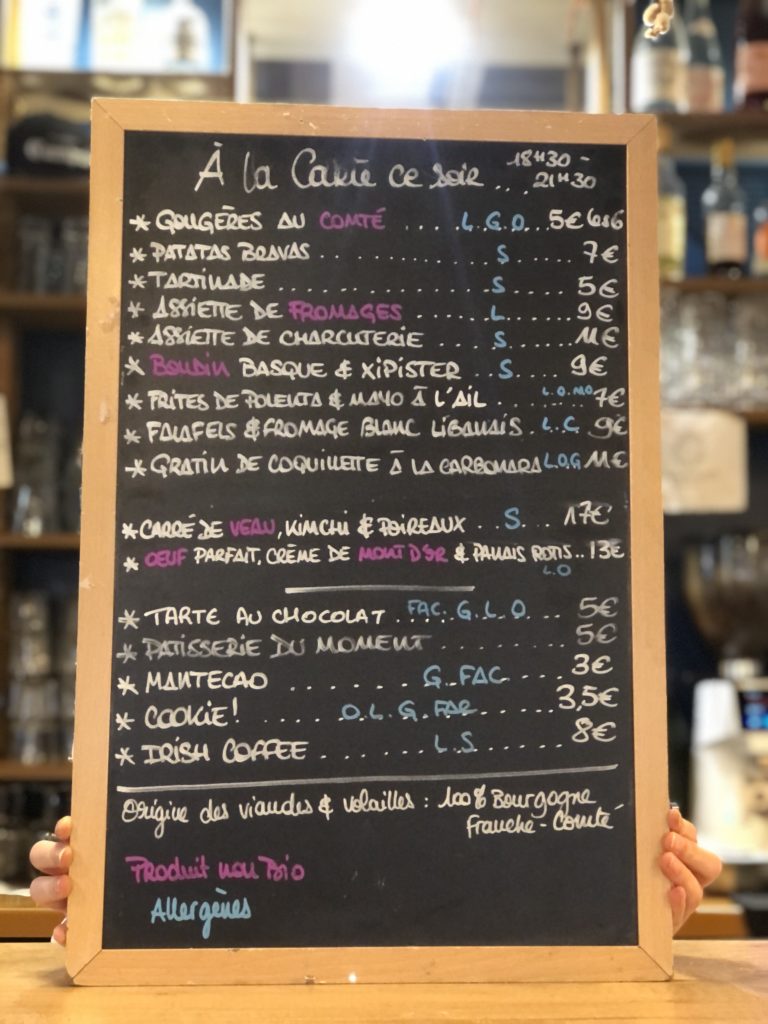 À la Carte ce soir... 18H30 -
21H30
* GOUGÈRES AU COMTÉ .... L.G.O.. 5€ les 6
* PATATAS BRAVAS ... S ... 7€
* TARTINADE ... S ... 5€
* ASSIETTE DE FROMAGES ... L ... 9€
* ASSIETTE DE CHARCUTERIE ... S ... 11€
* BOUDIN BASQUE & XIPISTER .. S .... 9€
* FRITES DE POLENTA & MAYO À L'AIL ... L.O.MO. 7€
* FALAFELS & FROMAGE BLANC LIBANAIS . L.C. 9€
* GRATIN DE COQUILLETTE À LA CARBONARA L.O.G 11€
* CARRÉ DE VEAU, KIMCHI & POIREAUX .. S ... 17€
* OEUF PARFAIT, CRÈME DE MONT D'OR & PANAIS ROTIS .. 13€
L.O
* TARTE AU CHOCOLAT FAC. G.L.O ... 5€
* PATISSERIE DU MOMENT ... 5€
* MANTECAO ...... G..FAC ..... 3€
* COOKIE! ..... O.L.G.FAC ..... 3,5€
* IRISH COFFEE ...... L.S ...... 8€
Origine des viandes & volailles : 100% Bourgogne
Franche-Comté
Produit non Bio
Allergènes